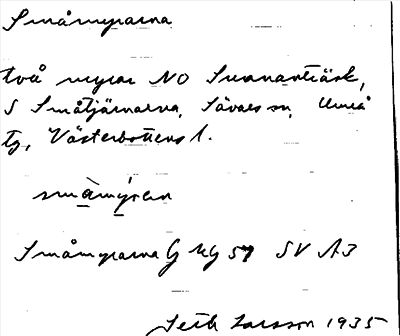 Småmyrarna
två myrar NO Sunnanträsk,
S Småtjärnarna, Sävars sn, Umeå
tg, Västerbottens l.
småmýran
Småmyrarna G KG 51 SV A3
Seth Larsson 1935